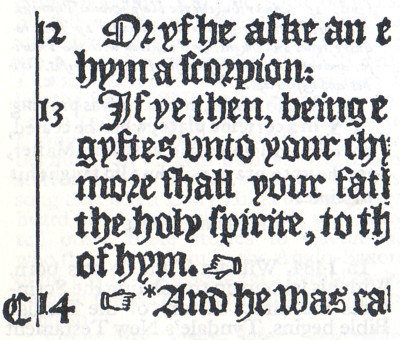 12 Or yf he aſke an e
hym a ſcorpion:
13 If ye then, beinge e
gyftes vnto your chy
more ſhall your fat
the holy ſpirite, to th
of hym. ☜
C 14 ☞ *And he was cal